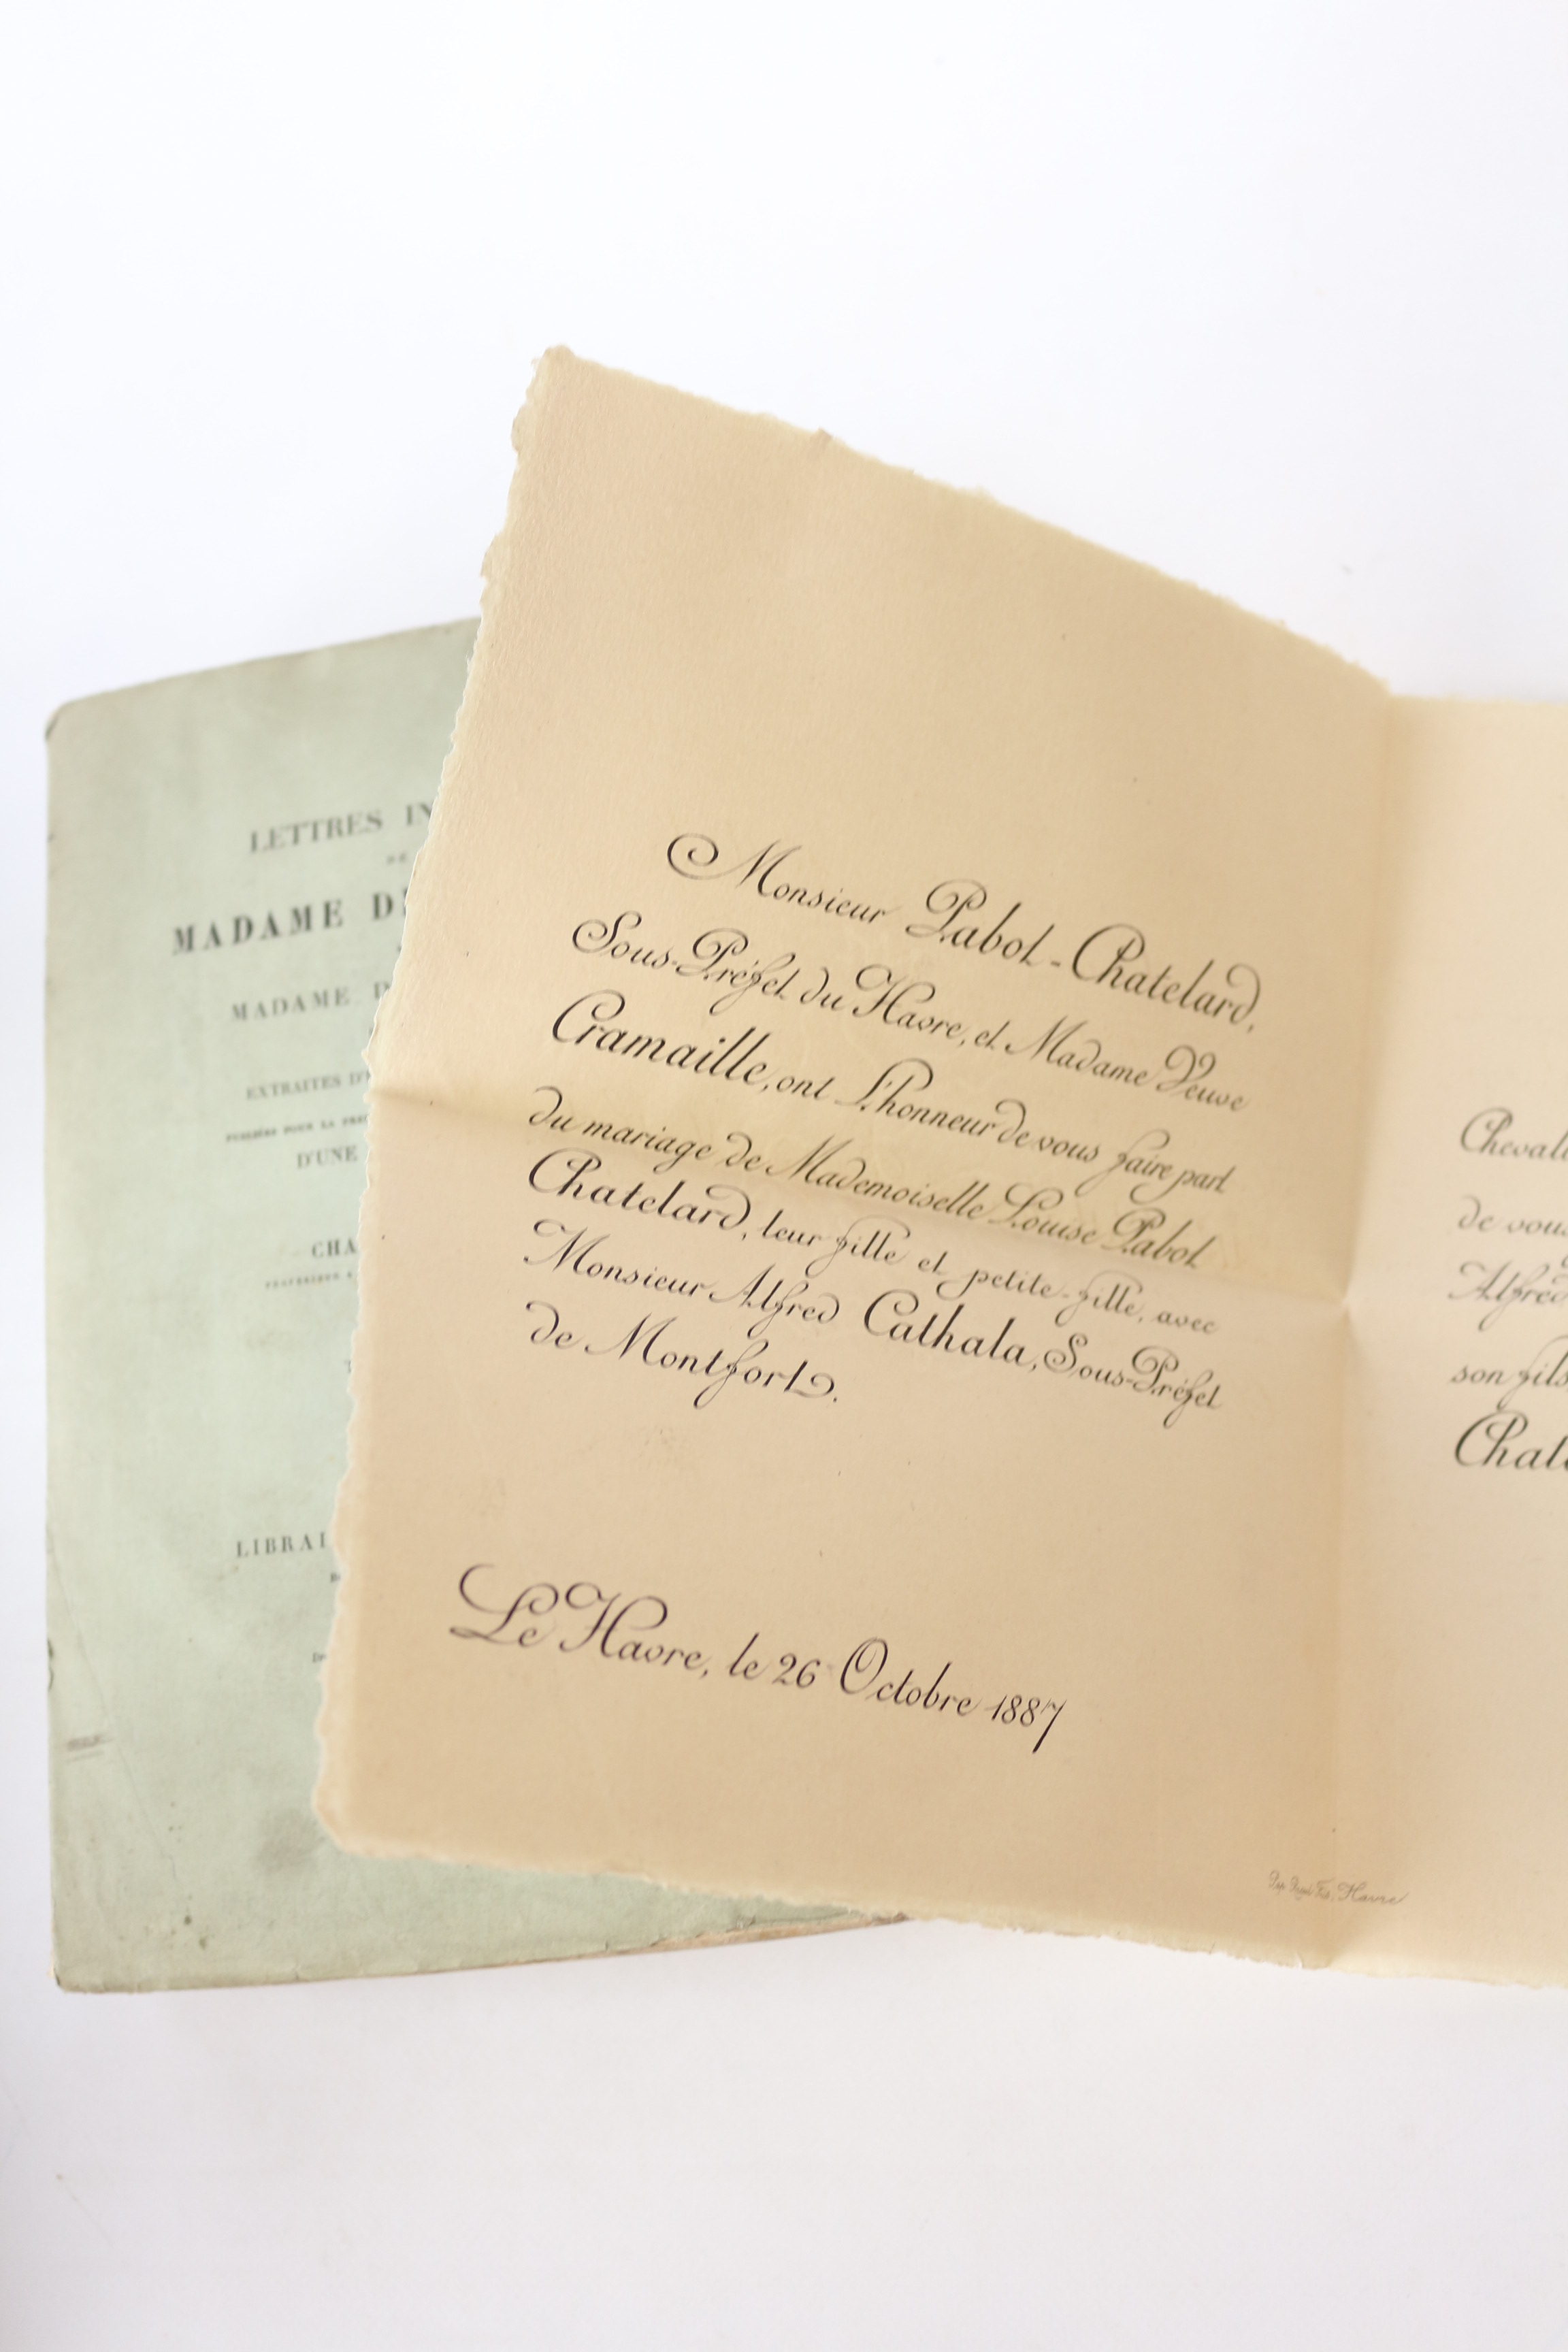 LETTRES IN
DE
MADAME DE
MADAME D
EXTRAITES D'
PUBLIÉES POUR LA PREM
D'UNE
CHA
LIBRAI
Monsieur Pabot-Chatelard,
Sous-Préfet du Havre, et Madame Veuve
Cramaille, ont l'honneur de vous faire part
du mariage de Mademoiselle Louise Pabot
Chatelard, leur fille et petite-fille, avec
Monsieur Alfred Cathala, Sous-Préfet
de Montfort.
Le Havre, le 26 Octobre 1887
Havre
Cheval
de vous
Alfred
son fils
Chate